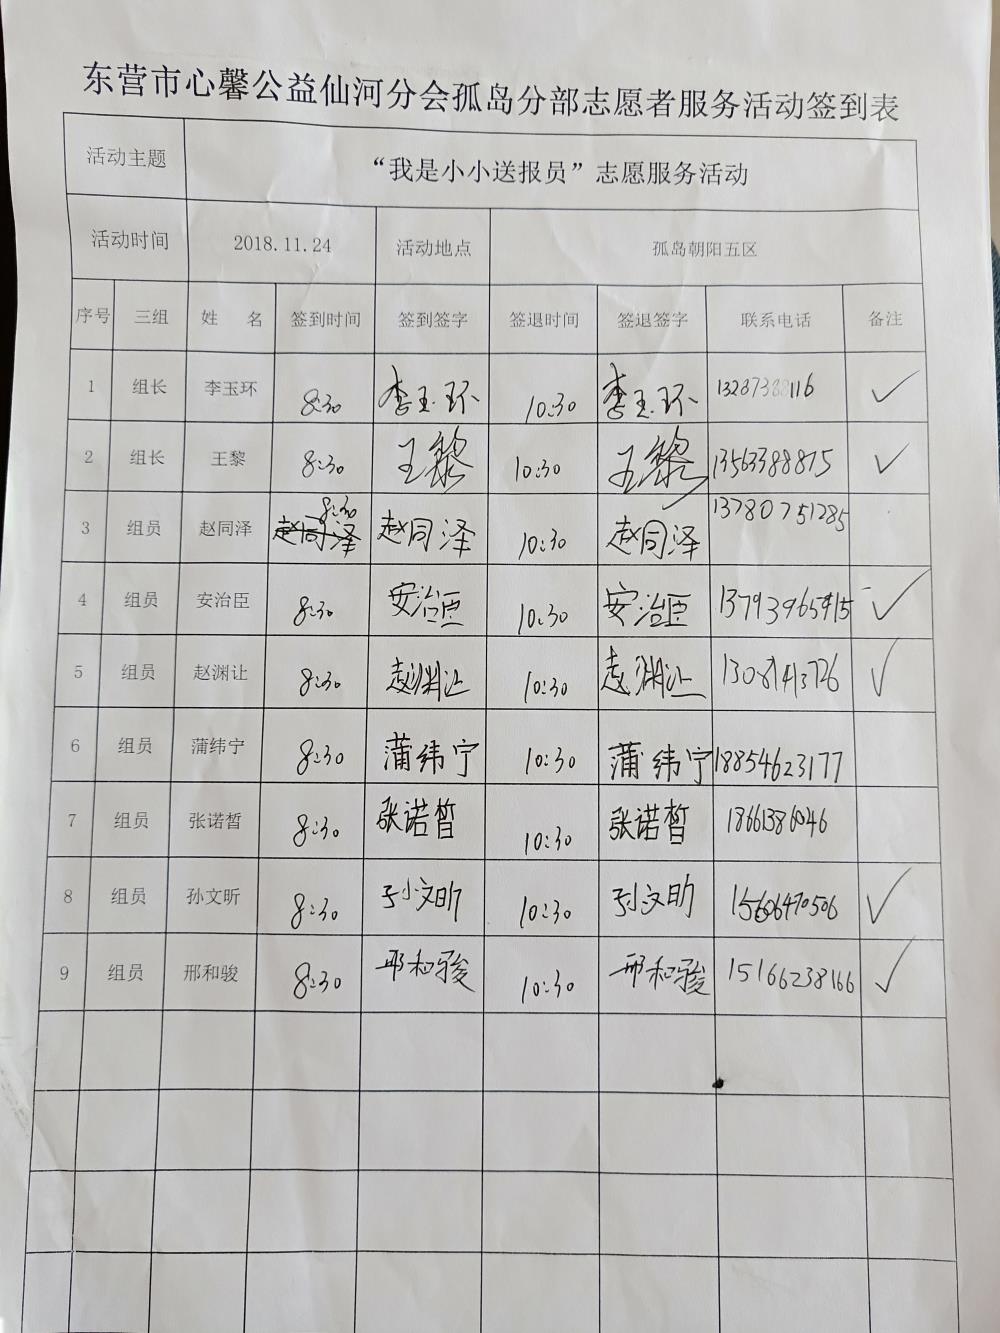 东营市心馨公益仙河分会孤岛分部志愿者服务活动签到表
活动主题 “我是小小送报员”志愿服务活动
活动时间 2018.11.24 活动地点 孤岛朝阳五区
序号 三组 姓 名 签到时间 签到签字 签退时间 签退签字 联系电话 备注
1 组长 李玉环 8:30 李玉环 10:30 李玉环 13287388116 ✓
2 组长 王黎 8:30 王黎 10:30 王黎 13563388875 ✓
3 组员 赵同泽 8:30 赵同泽 赵同泽 10:30 赵同泽 13780751285
4 组员 安治臣 8:30 安治臣 10:30 安治臣 13793965915 ✓
5 组员 赵渊让 8:30 赵渊让 10:30 赵渊让 ✓
6 组员 蒲纬宁 8:30 蒲纬宁 10:30 蒲纬宁 18854623177
7 组员 张诺皙 8:30 张诺皙 10:30 张诺皙
8 组员 孙文昕 8:30 孙文昕 10:30 孙文昕 15606470506 ✓
9 组员 邢和骏 8:30 邢和骏 10:30 邢和骏 15166238166 ✓